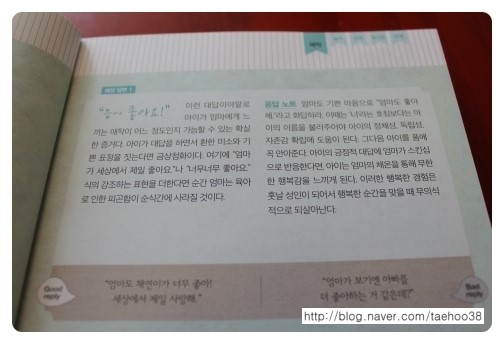 애착
예상 답변 1
"응~ 좋아요!"
이런 대답이야말로
아이가 엄마에게 느
끼는 애착이 어느 정도인지 가늠할 수 있는 확실
한 증거다. 아이가 대답을 하면서 환한 미소와 기
쁜 표정을 짓는다면 금상첨화이다. 여기에 "엄마
가 세상에서 제일 좋아요."나 "너무너무 좋아요."
식의 강조하는 표현을 더한다면 순간 엄마는 육아
로 인한 피곤함이 순식간에 사라질 것이다.
응답 노트 엄마도 기쁜 마음으로 "엄마도 좋아
해."라고 화답하라. 이때는 '너'라는 호칭보다는 아
이의 이름을 불러주어야 아이의 정체성, 독립성,
자존감 확립에 도움이 된다. 그다음 아이를 품에
꼭 안아준다. 아이의 긍정적 대답에 엄마가 스킨십
으로 반응한다면, 아이는 엄마의 채온을 통해 무한
한 행복감을 느끼게 된다. 이러한 행복한 경험은
훗날 성인이 되어서 행복한 순간을 맞을 때 무의식
적으로 되살아난다.
Good
reply
"엄마도 채연이가 너무 좋아!
세상에서 제일 사랑해."
"엄마가 보기엔 아빠를
더 좋아하는 거 같은데?"
Bad
reply
http://blog.naver.com/taehoo38